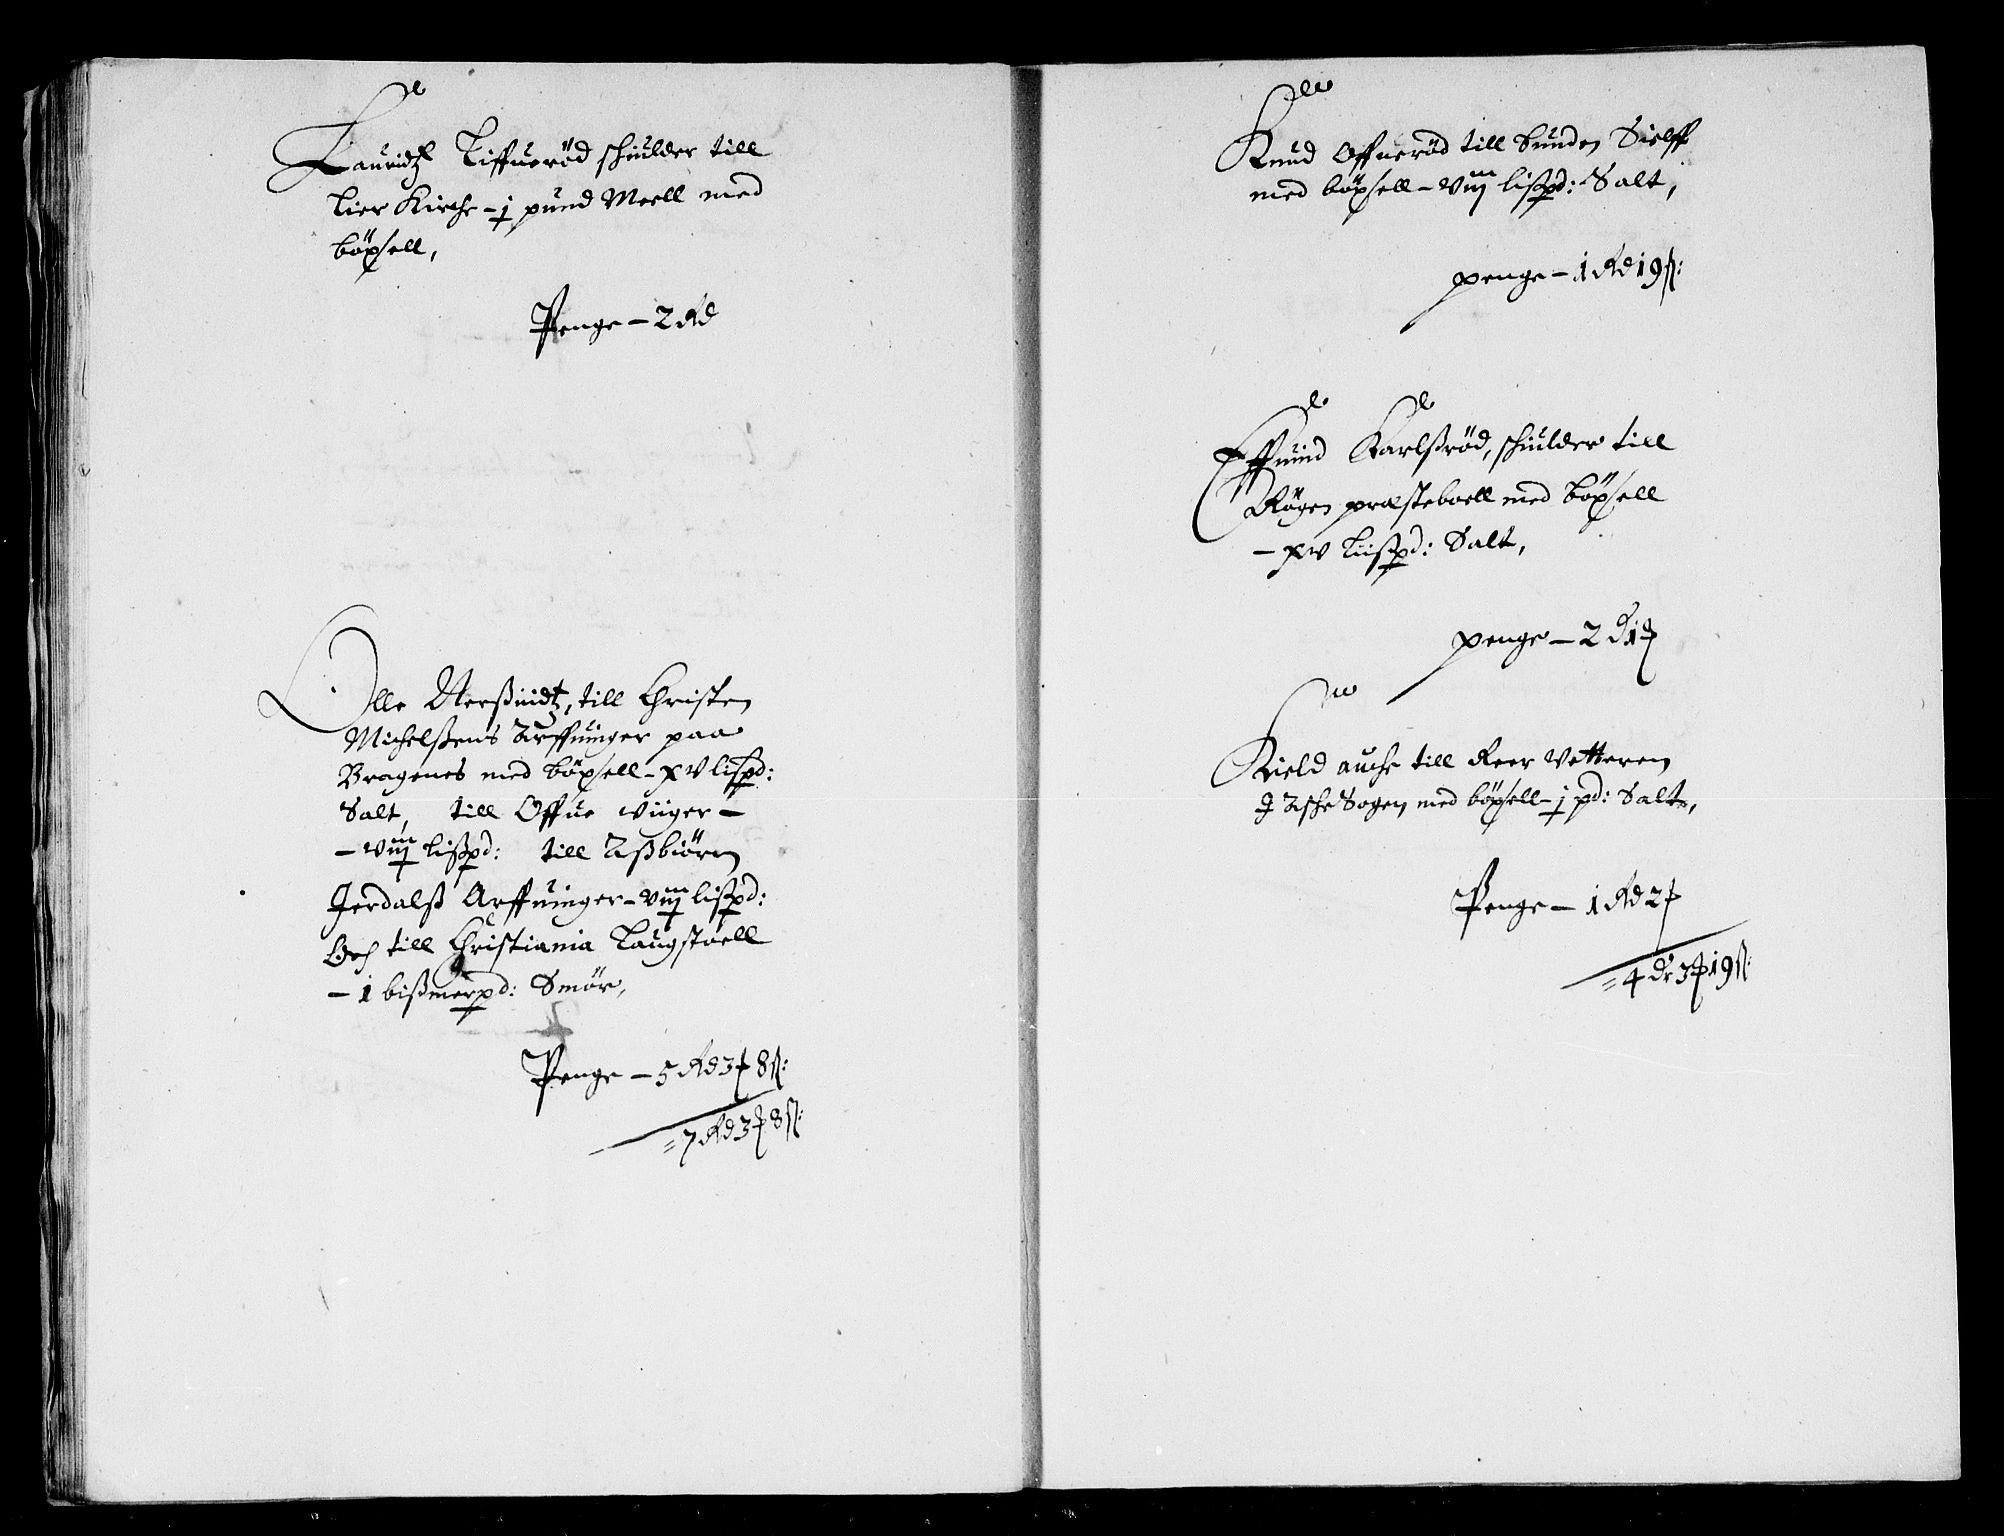 Lauridtz Liffuerød schulder till
Lier Kirche - j pund Meell med
böxsell,
Penge - 2 Rd
Olle Nerßnidt, till Christen
Michelßens Arffuinger paa
Bragenes med böxsell - xv lispd:
Salt, till Offue viiger -
- viij lißpd: till Aßbiörn
Jerdalß Arffuinger - viij lißpd:
Och till Christiania Laugstoell
- 1 bißmerpd: Smör,
Penge - 5 Rd 3 ƒ 8 ß:
= 7 Rd 3 ƒ 8 ß:
Knud Offuerød till bunden Sielff
med böxsell - viij lißpd: Salt,
penge - 1 Rd 19 ß:
Effuind Karlßröd, schulder till
Rögen præsteboell med böxsell
- xv Lißpd: Salt,
penge - 2 d 1 ƒ
Kield auche till Reer Vetteren
J Asche Sogen med böxsell - j pd: Salt,
Penge - 1 Rd 2 ƒ
= 4 dr 3 ƒ 19 ß: